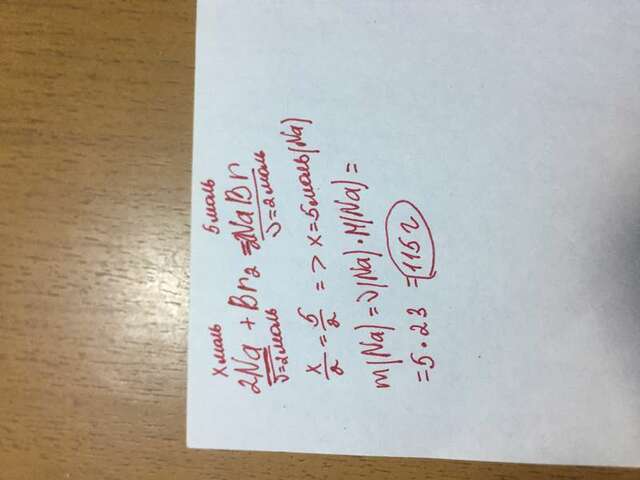 x моль 5 моль
2Na + Br₂ = 2NaBr
ν=2моль ν=2моль
x/2 = 5/2 => x=5моль(Na)
m(Na) = ν(Na)·M(Na) =
=5·23 =115г